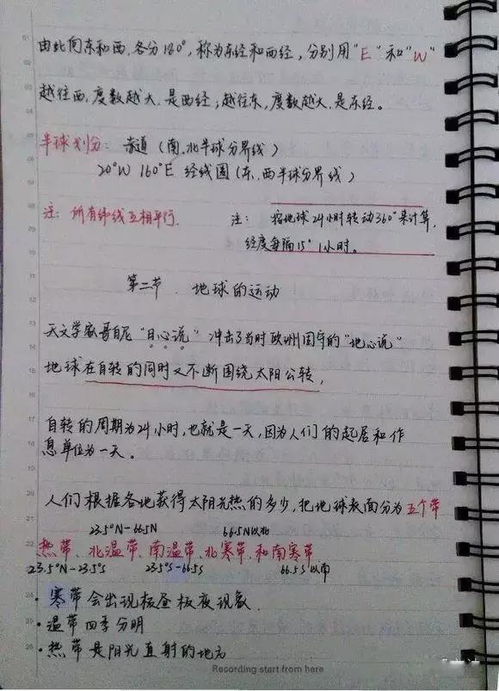 由此向东和西,各分180°,称为东经和西经,分别用"E"和"W"
越往西,度数越大,是西经;越往东,度数越大,是东经。
半球划分:赤道(南、北半球分界线)
20°W 160°E 经线圈(东、西半球分界线)
注:所有纬线互相平行. 注:按地球24小时转动360°来计算,
经度每隔15° 1小时。
第二节 地球的运动
天文学家哥白尼"日心说"冲击了当时欧洲的"地心说"
地球在自转的同时又不断围绕太阳公转,
自转的周期为24小时,也就是一天,因为人们的起居和作
息单位为一天。
人们根据各地获得太阳光热的多少,把地球表面分为五个带
23.5°N-66.5N 66.5N以北
热带、北温带、南温带、北寒带、和南寒带
23.5°N-23.5°S 23.5°S-66.5S 66.5S以南
·寒带会出现极昼极夜现象.
·温带四季分明
·热带是阳光直射的地方
Recording start from here